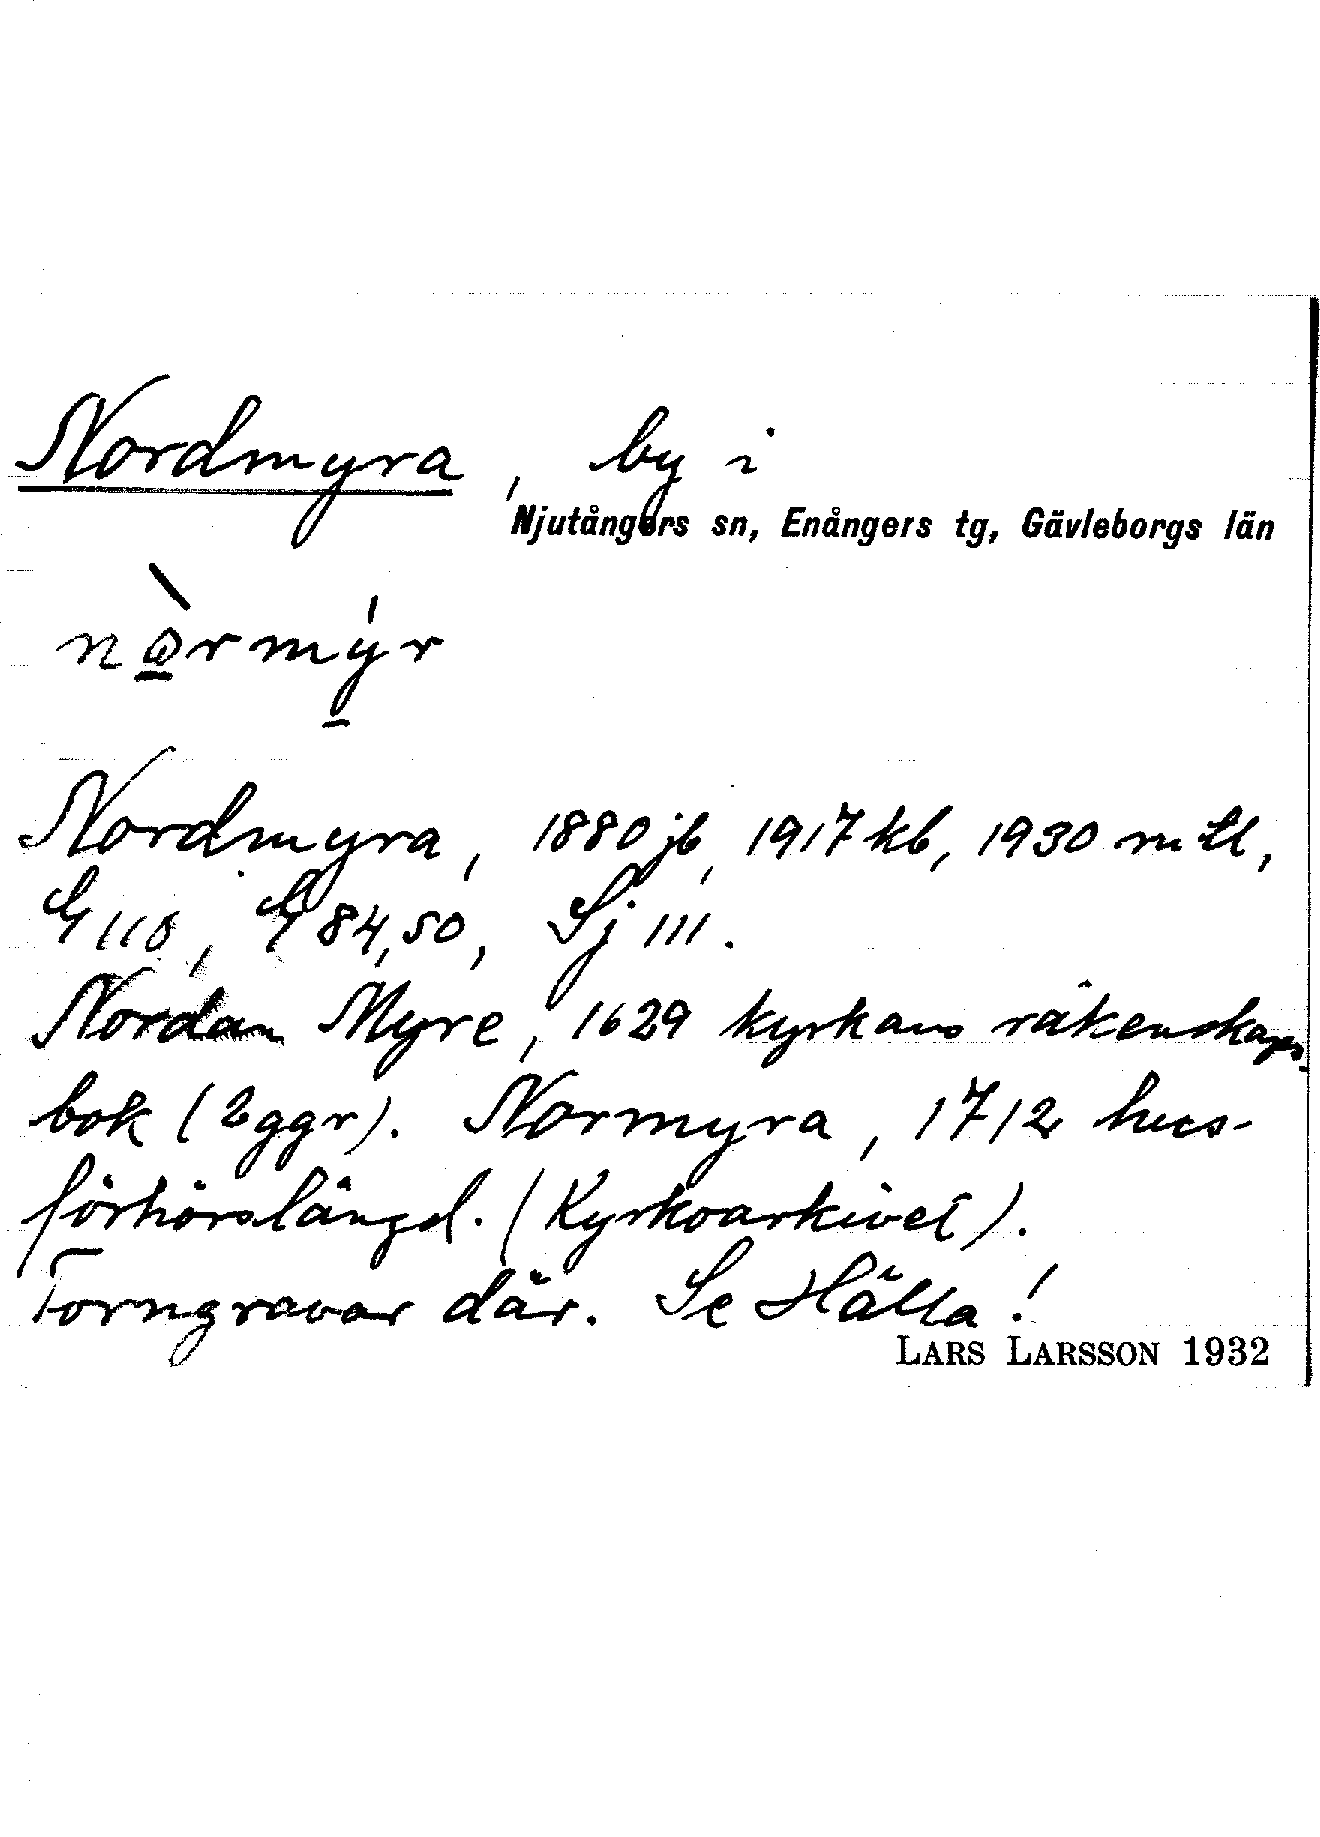 Nordmyra, by i
Njutångers sn, Enångers tg, Gävleborgs län
nòrmýr
Nordmyra, 1880 jb, 1917 kb, 1930 mtl,
G 110, G 84,50, Sj III.
Nordan Myre, 1629 kyrkans räkenskaps-
bok (2 ggr). Normyra, 1712 hus-
förhörslängd. (Kyrkoarkivet).
Forngravar där. Se Hälla!
LARS LARSSON 1932